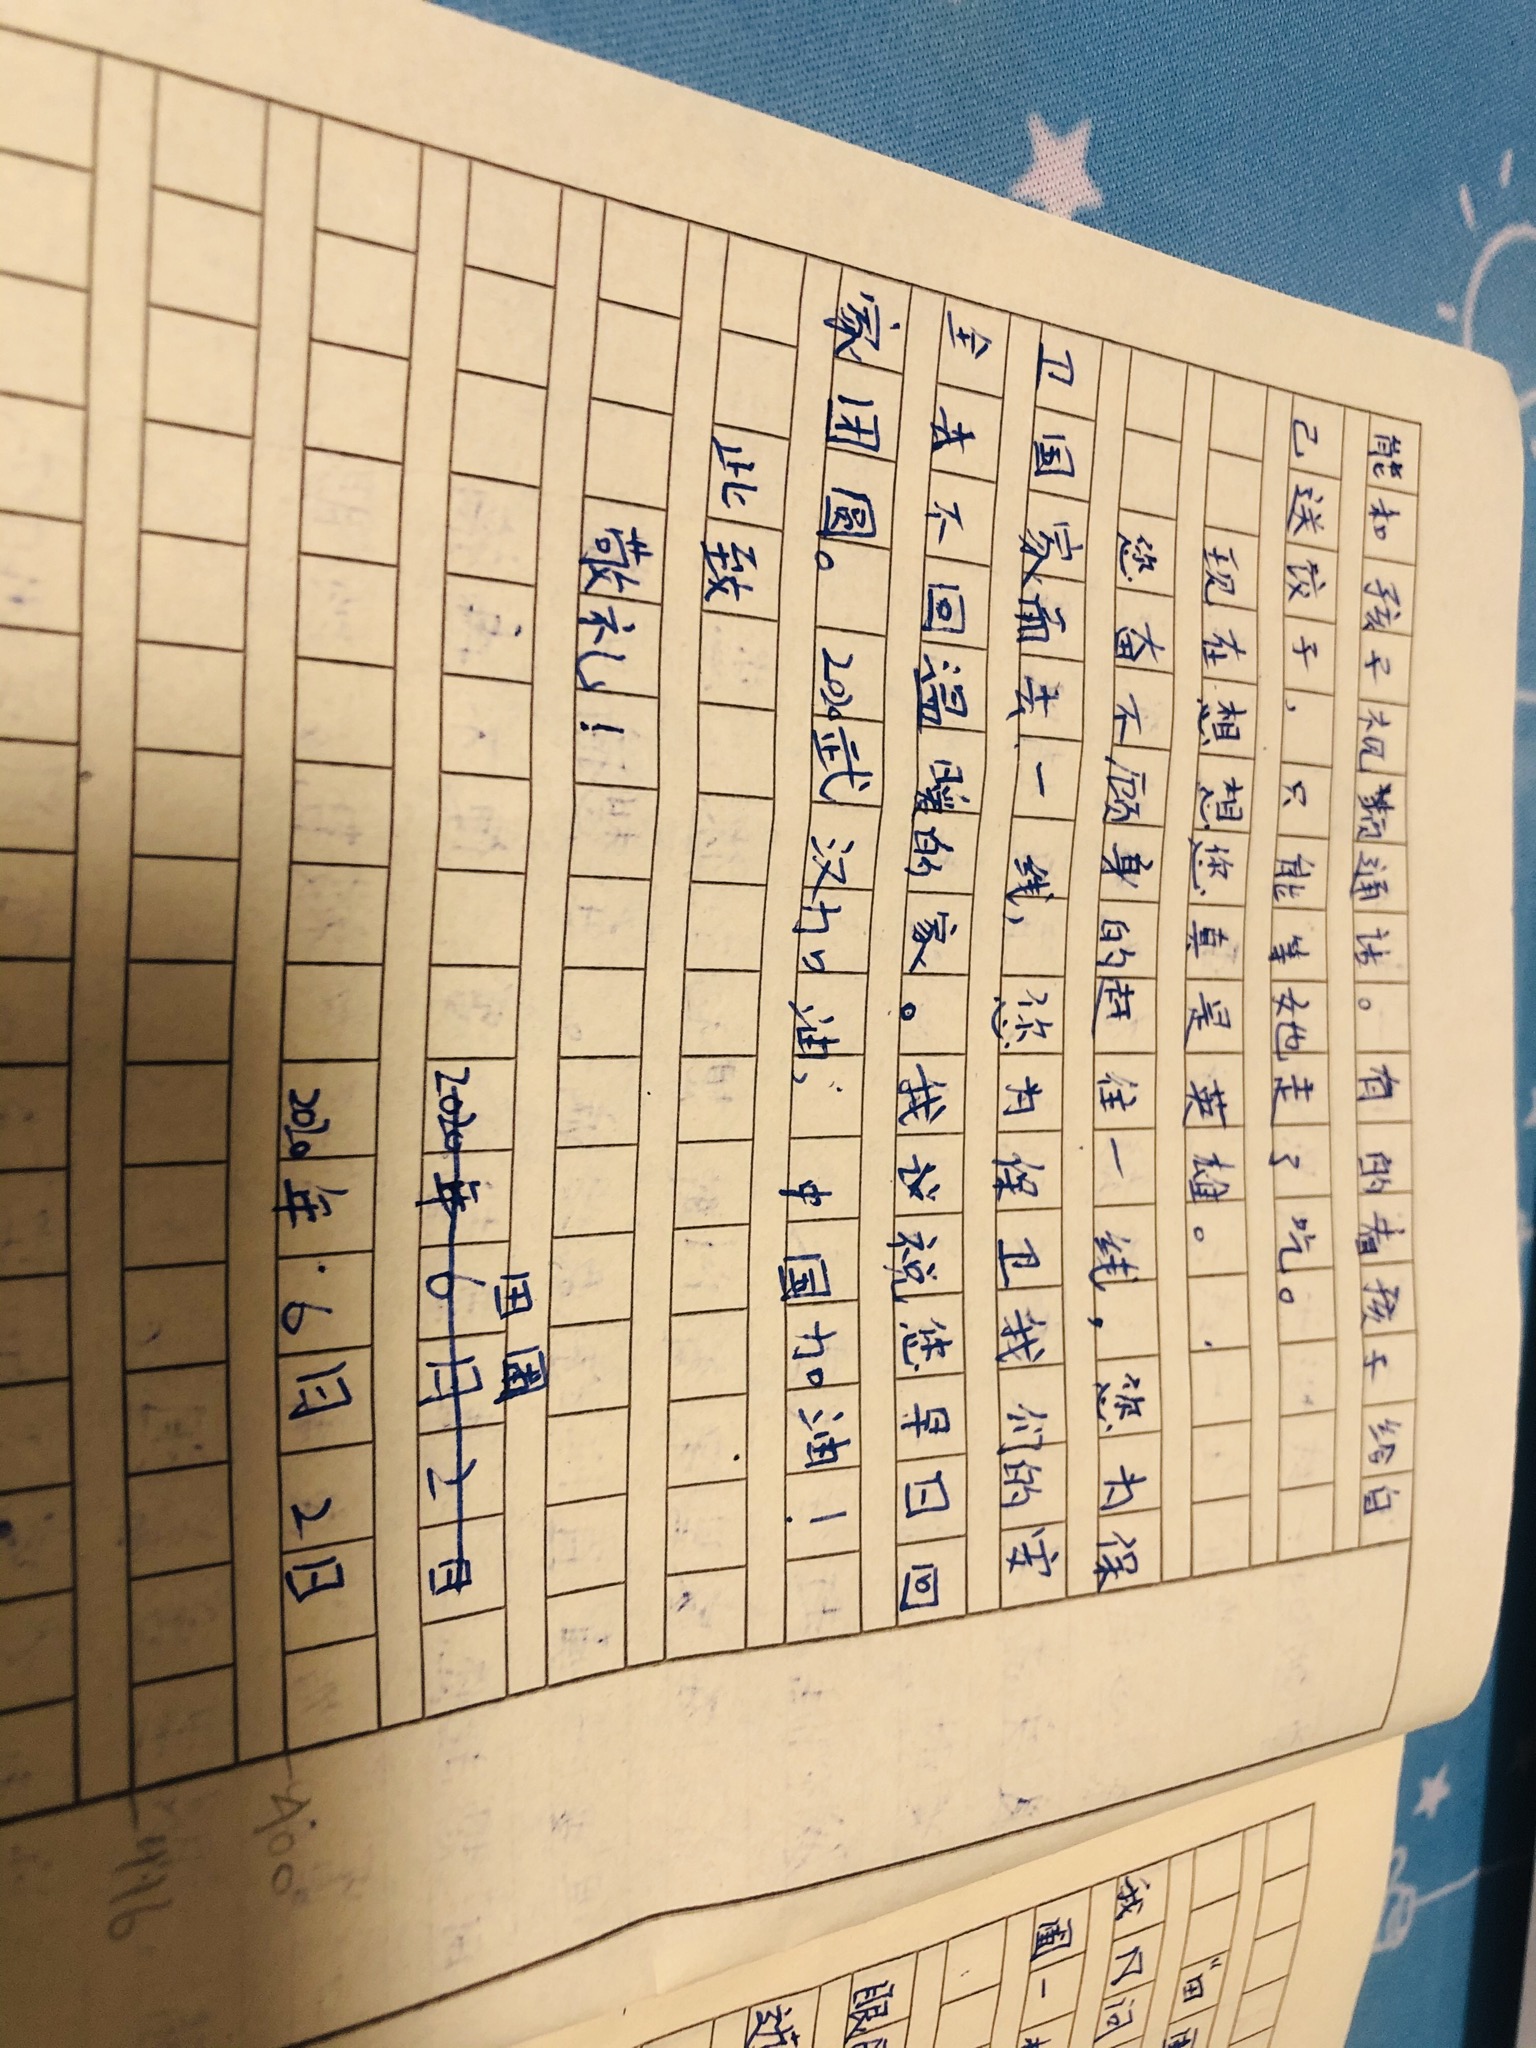 能和孩子视频通话。有的看孩子给自
己送饺子，只能等她走了吃。
现在想想您真是英雄。
您奋不顾身的赶往一线，您为保
卫国家而去一线，您为保卫我们的安
全去不回温暖的家。我祝您早日回
家团圆。2020武汉加油，中国加油！
此致
敬礼！
田圃
2020年6月2日
2020年6月2日
"田
我只问
圃一
眼